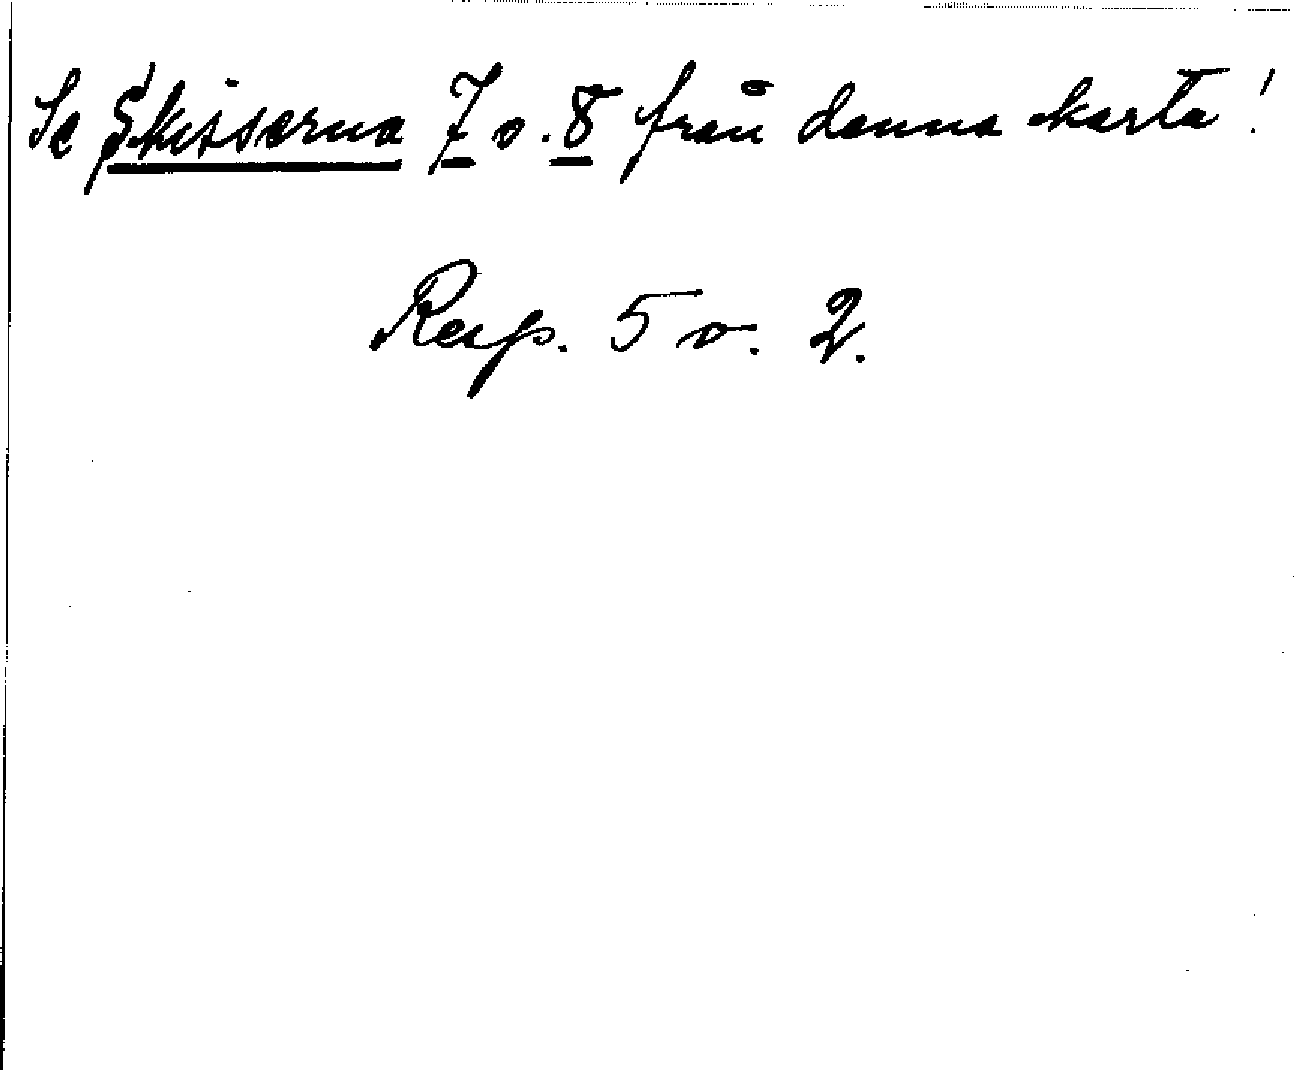 Se Skisserna 7 o. 8 från denna karta!
Resp. 5 o. 2.